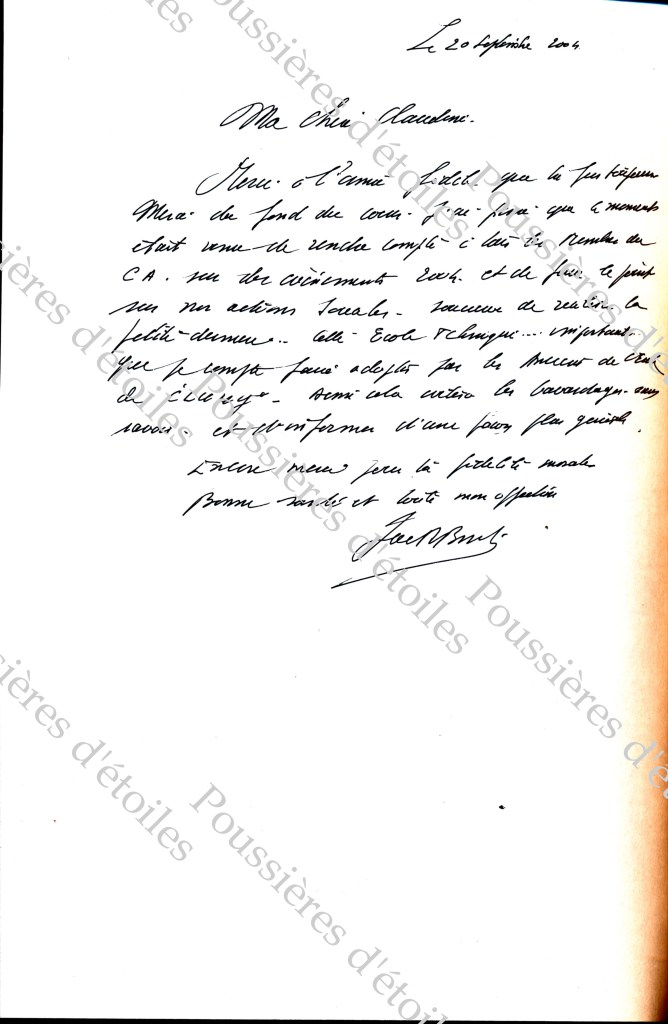 Le 20 Septembre 2004
Ma Chère Claudine.
Merci à l'amie fidèle que tu es
Merci du fond du coeur. J'ai pensé que le moment
était venu de rendre compte à tous les Membres du
CA. sur des évènements 2004. et de faire le point
sur nos actions Sociales. de la
petite Ecole Technique... important.
que je compte faire par les de
de Cluny. Ainsi cela évitera les bavardages sans
savoir. et d'informer d'une façon plus générale.
Encore merci pour ta fidélité morale
Bonne santé et toute mon affection
Poussières d'étoiles
Poussières d'étoiles
Poussières d'étoiles
Poussières d'étoiles
Poussières d'étoiles
Poussières d'étoiles